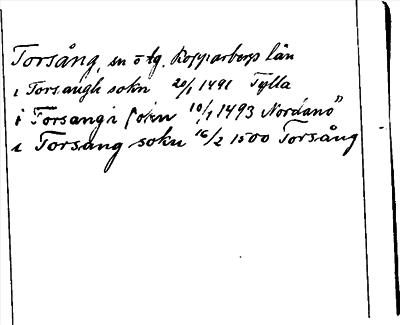 Torsång, sn o tg. Kopparbergs län
i Torsaugh sokn 20/1 1491 Tylla
i Torsangæ sokn 10/1 1493 Nordanö"
i Torsang sokn 16/2 1500 Torsång